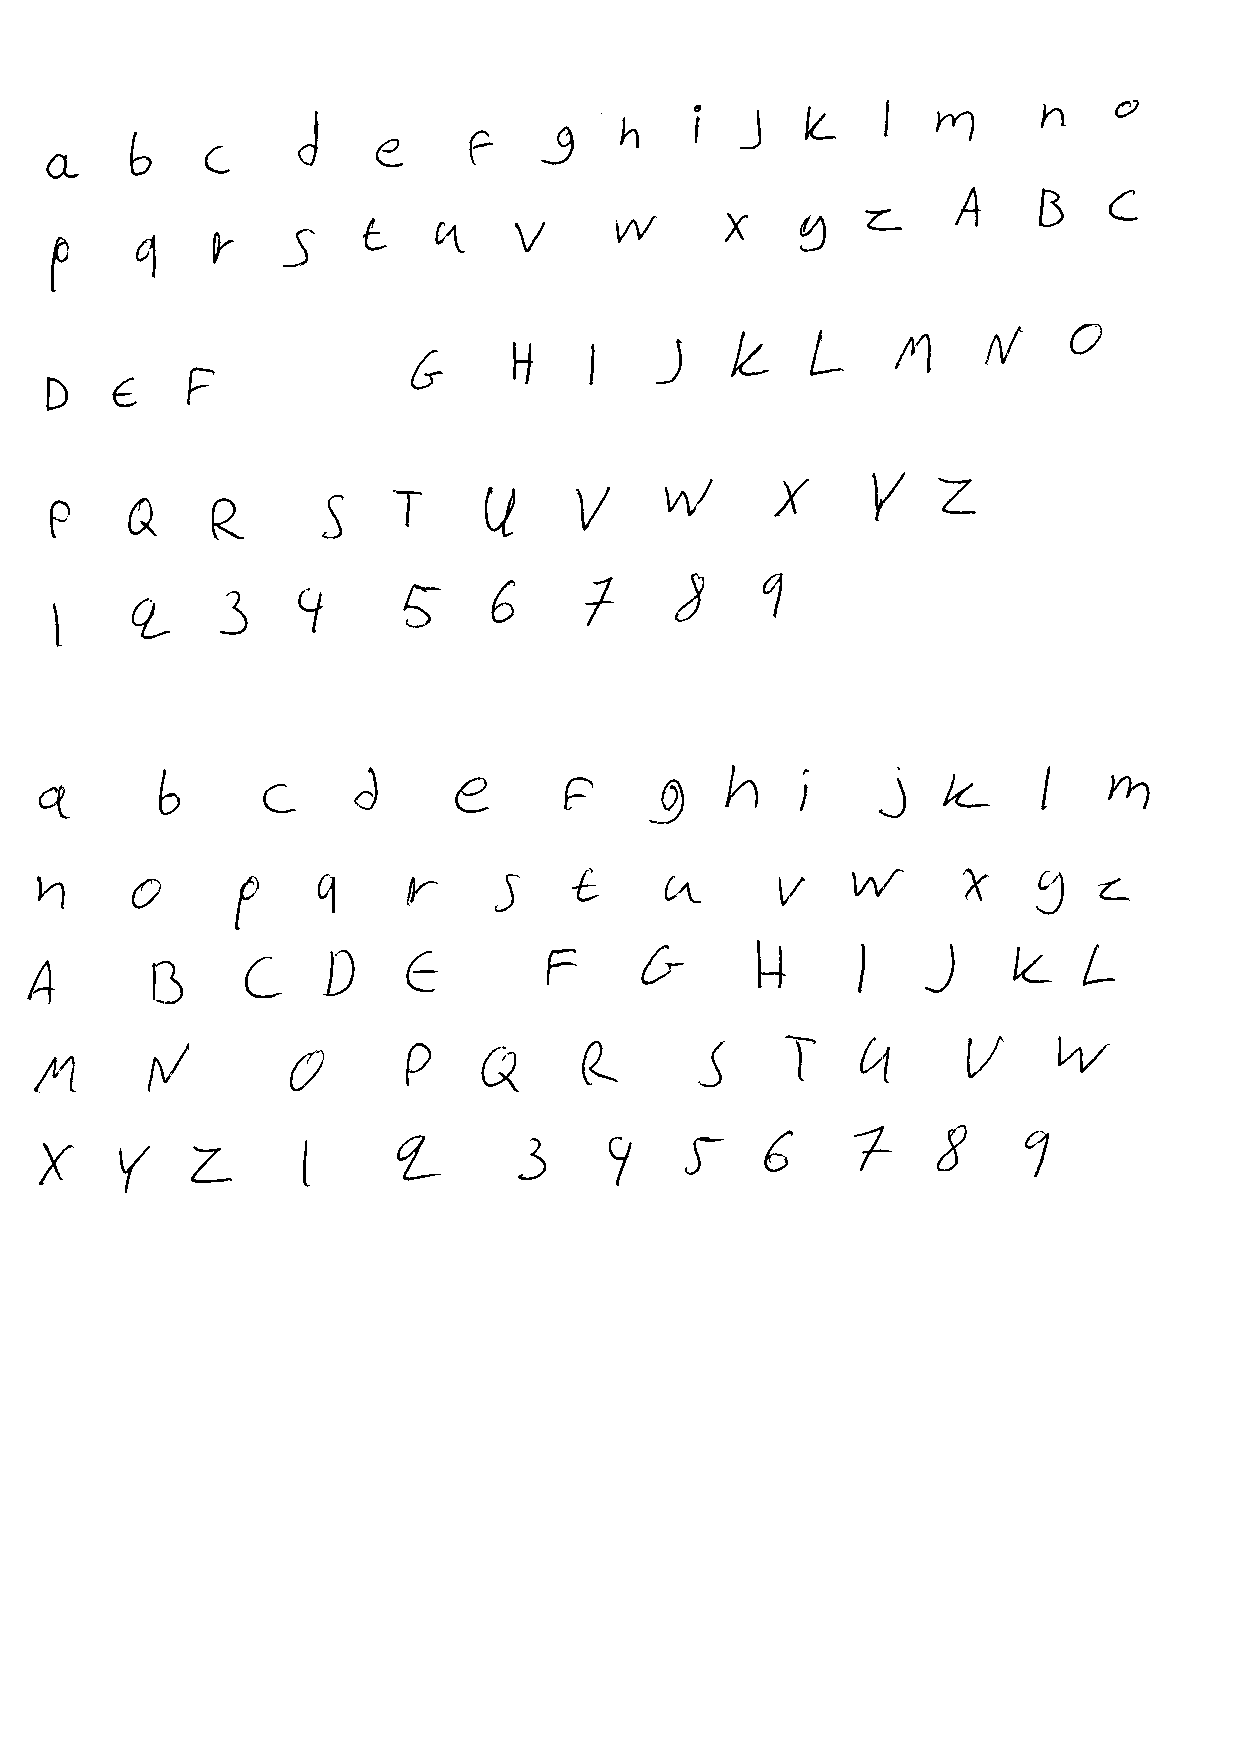 a b c d e f g h i j k l m n o
p q r s t u v w x y z A B C
D E F G H I J K L M N O
P Q R S T U V W X Y Z
1 2 3 4 5 6 7 8 9
a b c d e f g h i j k l m
n o p q r s t u v w x y z
A B C D E F G H I J K L
M N O P Q R S T U V W
X Y Z 1 2 3 4 5 6 7 8 9